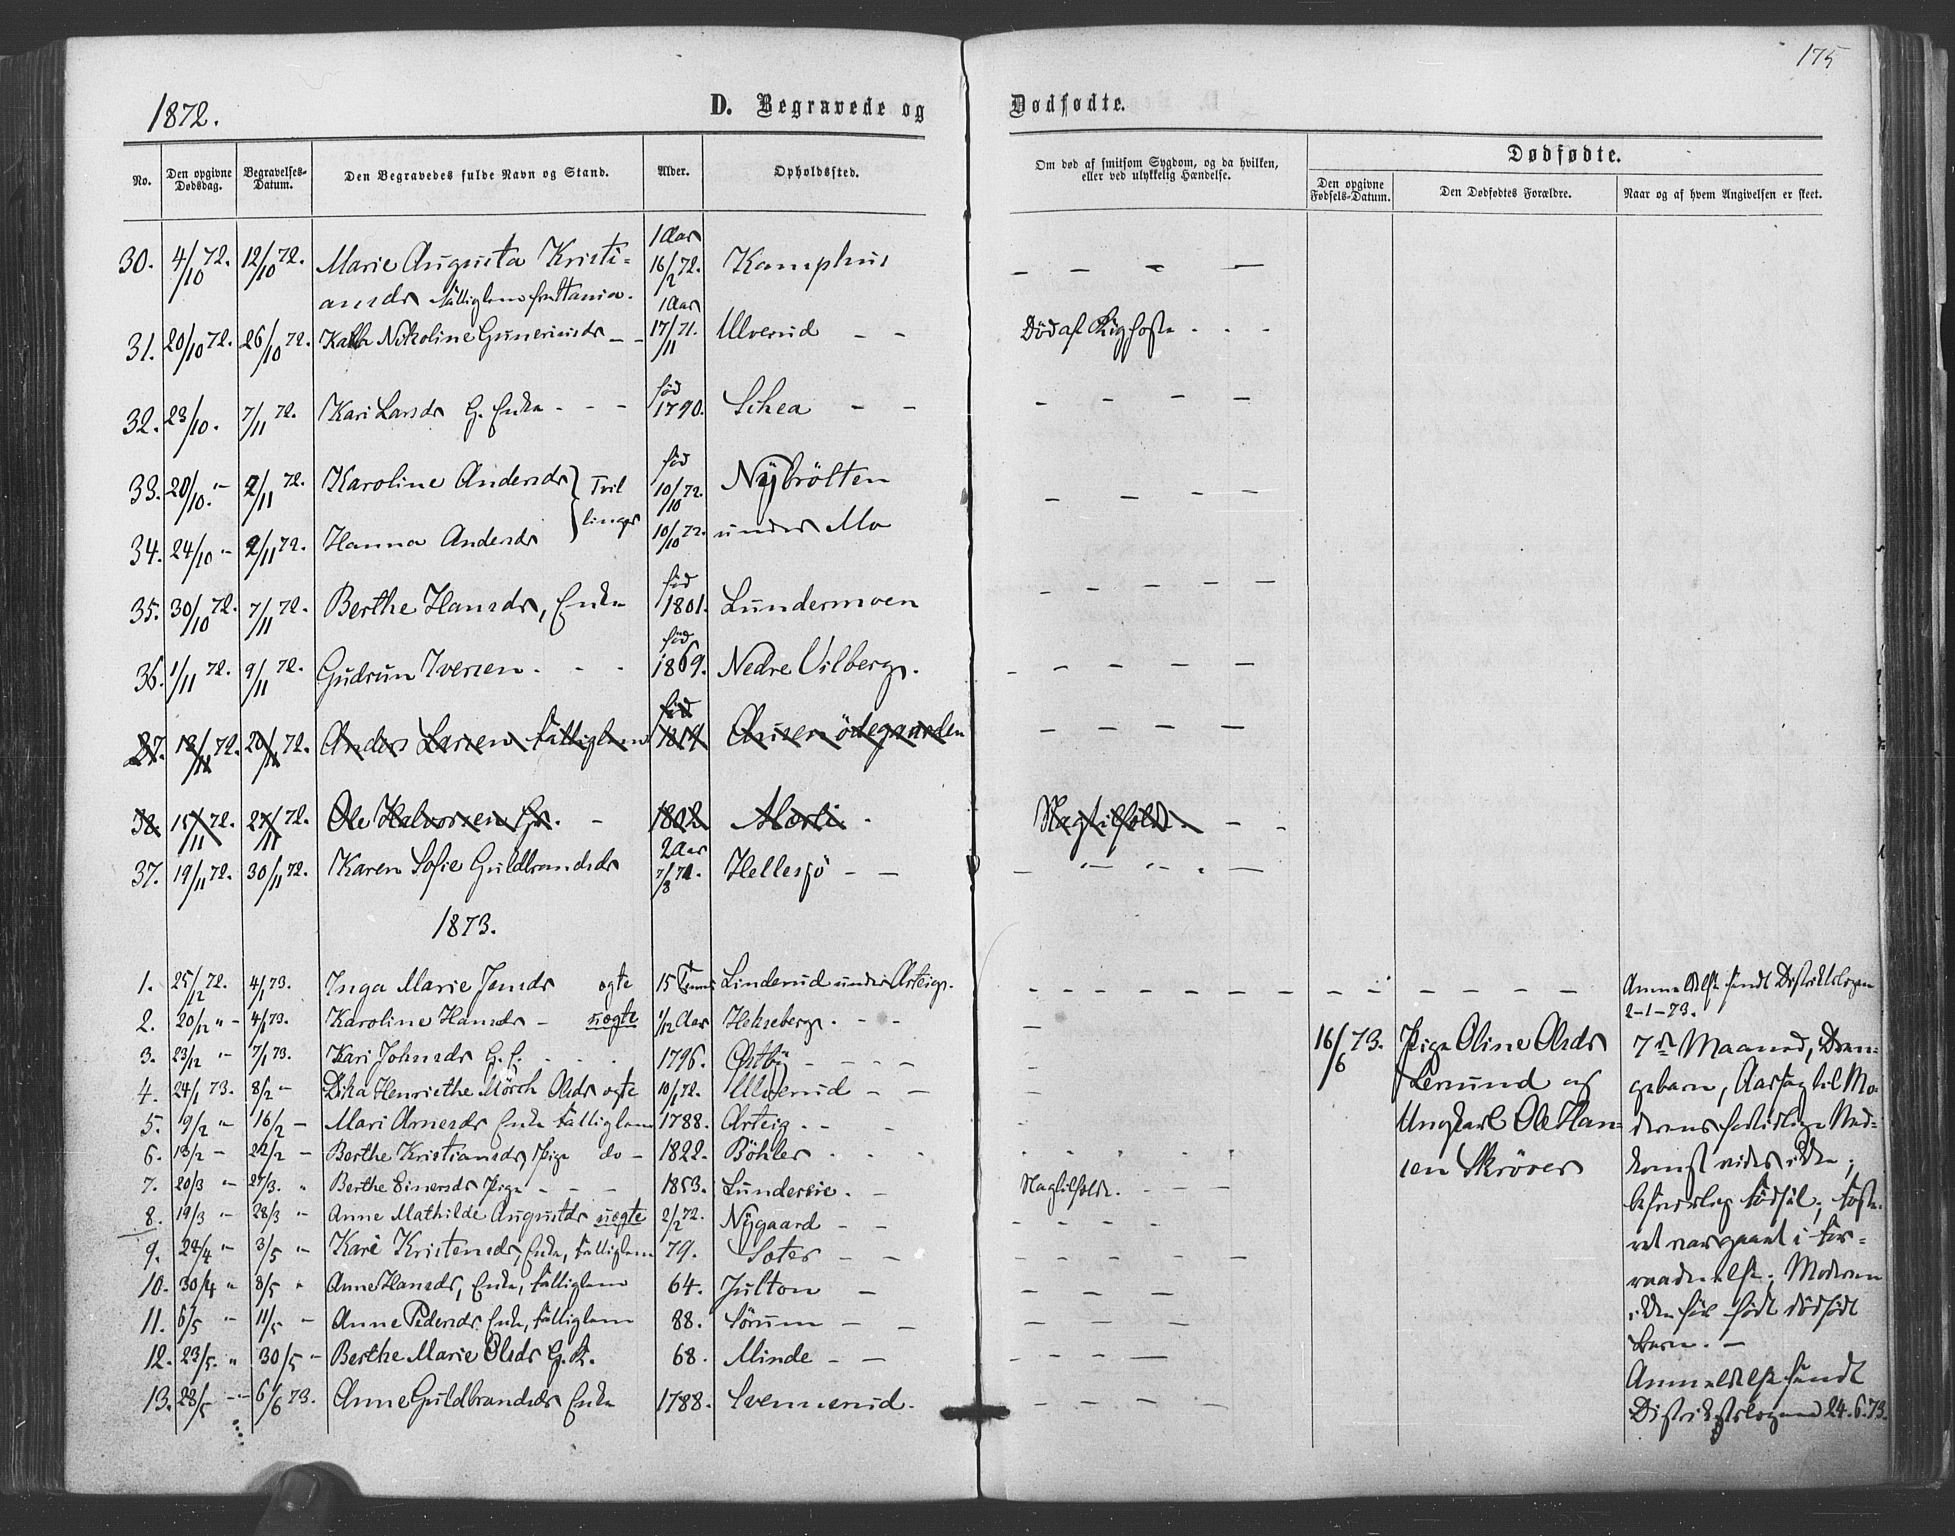 175
1872.
D. Begravede og Dødfødte.
No. Den opgivne Dødsdag. Begravelses-Datum. Den Begravedes fulde Navn og Stand. Alder. Opholdssted. Om død af smitsom Sygdom, og da hvilken, eller ved ulykkelig Hændelse. Dødfødte.
Den opgivne Fødsels-Datum. Den Dødfødtes Forældre. Naar og af hvem Angivelsen er skeet.
30. 4/10 72. 12/10 72. Marie Augusta Kristi- 1 Aar 16/2 72. Kamphus
ansdr Fattiglem
31. 20/10 72. 26/10 72. Kath Nikoline Gunneriusdr 1 Aar 17/11 71. Ulverud Død af Kighoste
32. 23/10. 7/11 72. Kari Larsdr G. Enke fød 1790. Schea
33. 20/10. " 2/11 72. Karoline Andersdr } Tvil fød 10/10 72. Nybrøtten
34. 24/10 " 2/11 72. Hanna Andersdr } linger 10/10 72. under Mo
35. 30/10 72. 7/11 72. Berthe Hansdr, Enke fød 1801. Lundermoen
36. 1/11 72. 9/11 72. Gudrun Iversen fød 1869. Nedre Vilberg.
37. 13/11 72. 20/11 72. Anders Larsen Fattiglem fød 1819 Ausenødegaarden
38. 15/11 72. 27/11 72. Ole Halvorsen 1802. Mørli Slagtilfælde.
37. 19/11 72. 30/11 72. Karen Sofie Guldbrandsdr 2 Aar 7/8 71. Hellesjø
1873.
1. 25/12 72. 4/1 73. Inga Marie Jensdr ægte 15 Timer Linderud under Arteig. Anmeldelse sendt Distriktslægen
2-1-73.
2. 20/12 " 4/1 73. Karoline Hansdr uægte 1/12 Aar Hekseberg.
3. 23/12 " 7/1 73. Kari Johnsdr G. E. 1796. Østby
4. 24/1 73. 8/2 " Dika Henriethe Mörch Olsdr ægte 10/1 72. Ulverud
5. 9/2 " 16/2 " Mari Arnesdr Enke Fattiglem 1788. Arteig
6. 13/2 " 22/2 " Berthe Kristiansdr, Pige do 1822. Böhler
7. 20/3 " 27/3. " Berthe Einersdr Pige 1853. Lundereie. Slagtilfælde.
8. 19/3 " 28/3 " Anne Mathilde Augustdr uægte 2/2 72. Nygaard
9. 24/4 " 3/5 " Kari Kristensdr, Enke, Fattiglem 79. Soter
10. 30/4 " 8/5 " Anne Hansdr, Enke, Fattiglem 64. Julton
11. 6/5 " 11/5 " Anne Pedersdr Enke, Fattiglem 88. Sörum
12. 23/5. " 30/5 " Berthe Marie Olsdr G. K. 68. Minde
13. 28/5 " 6/6 73. Anne Guldbrandsdr Enke 1788. Svennerud.
16/6 73. Pige Oline Olsdr
Lersund og
Ungkarl Ole Han-
sen Skröver
7de Maaned, Dren-
gebarn, Aarsag til Mo-
derens
vides ikke;
Foste-
ret
raadnelse; Moderen
ikke før født dødfødt
Barn.
Anmeldelse sendt
Distriktslægen 24.6.73.